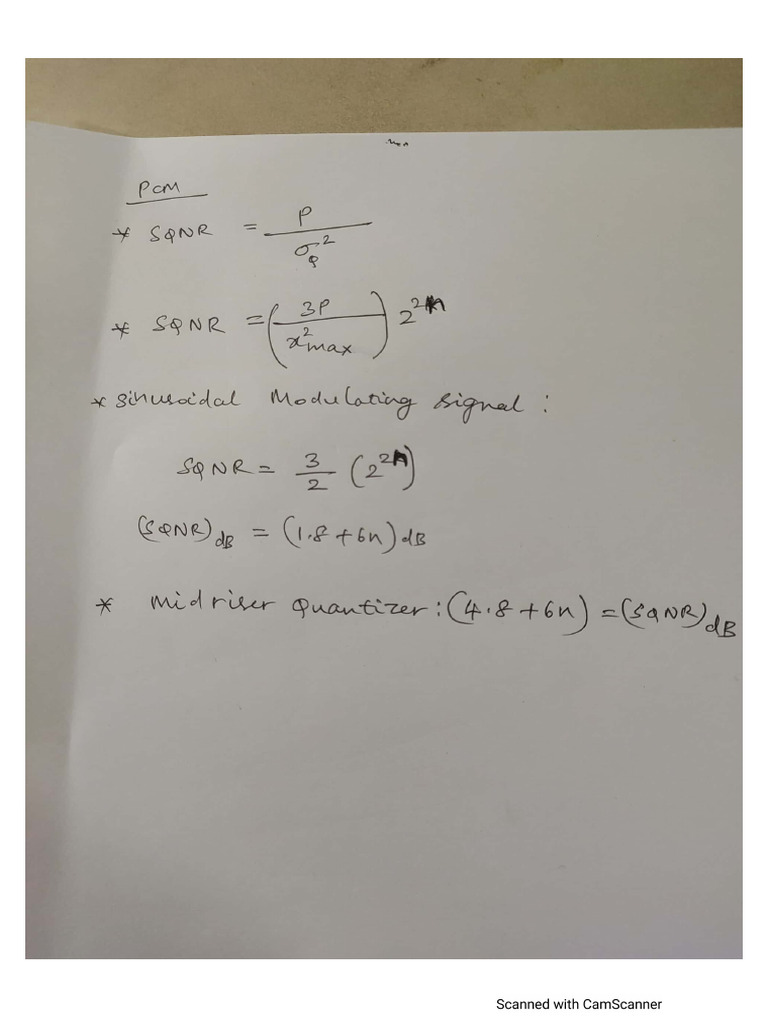 PCM
* SQNR = P / σ_Q^2
* SQNR = (3P / x^2_max) 2^2n
* Sinusoidal Modulating signal :
SQNR = 3/2 (2^2n)
(SQNR)_dB = (1.8 + 6n) dB
* Midriser Quantizer : (4.8 + 6n) = (SQNR)_dB
Scanned with CamScanner